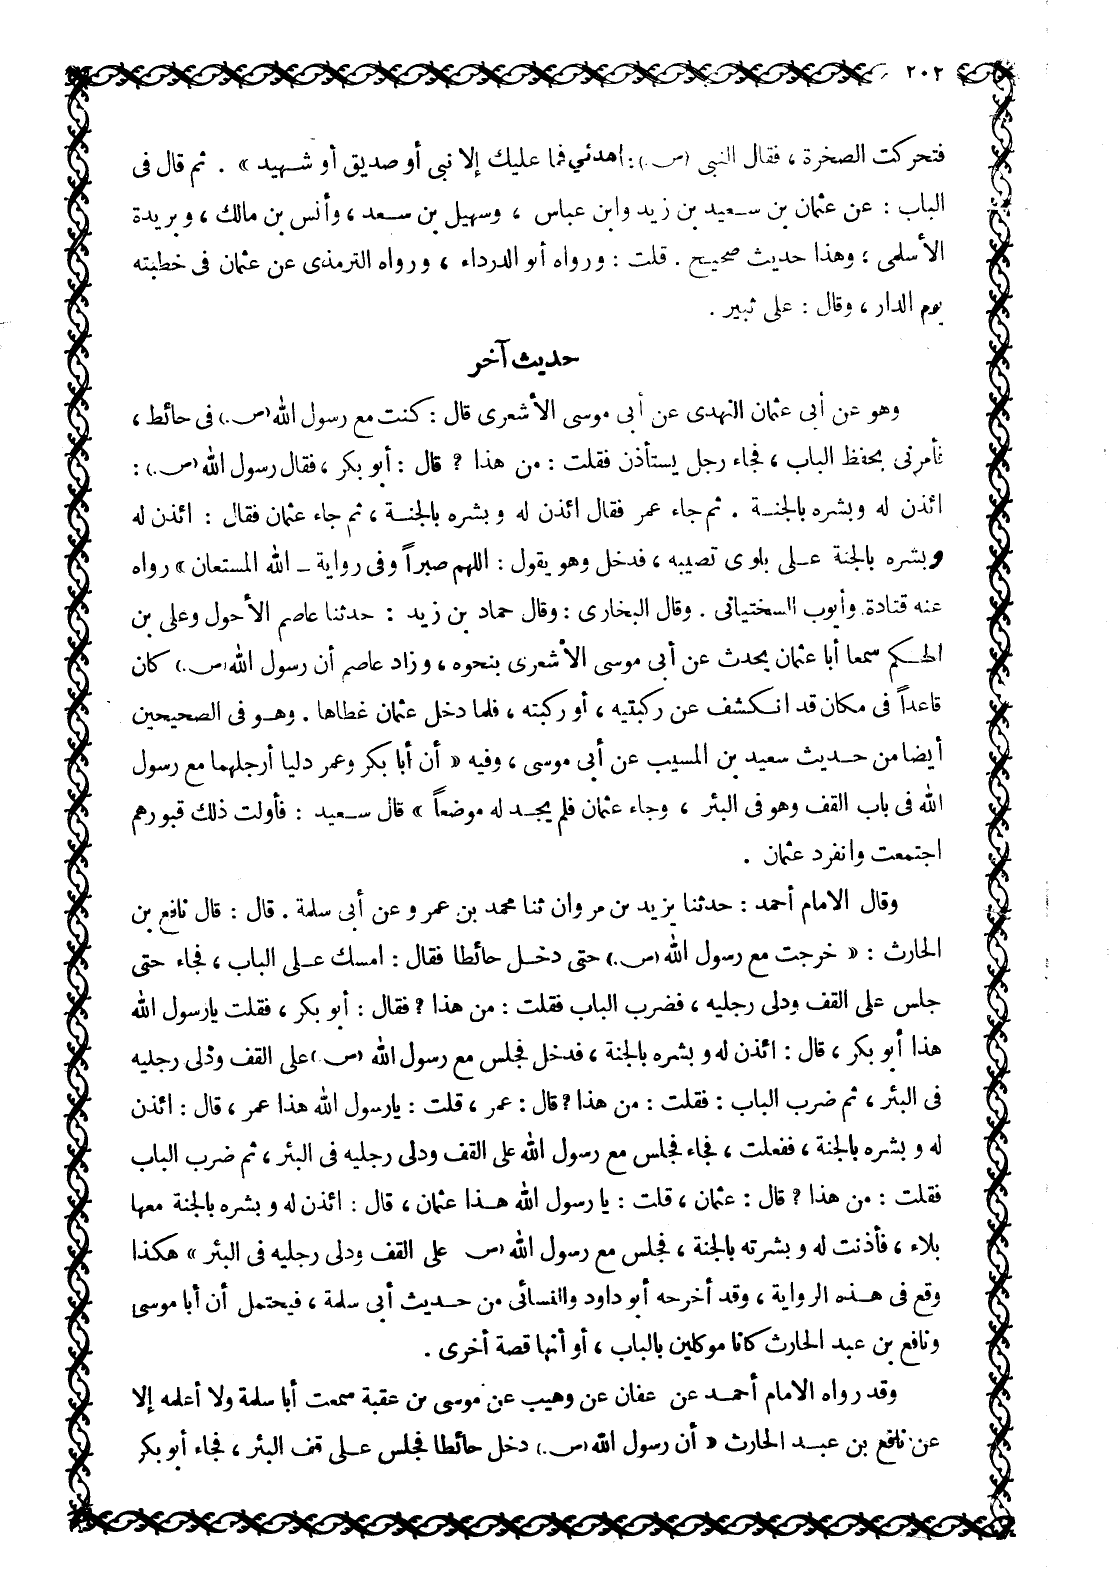 ٢٠٢
فتحركت الصخرة ، فقال النبى (ص.) : أهدئي فما عليك إلا نبى أو صديق أو شهيد » . ثم قال فى
الباب : عن عثمان بن سعيد بن زيد وابن عباس ، وسهيل بن سعد ، وأنس بن مالك ، وبريدة
الأسلمى ، وهذا حديث صحيح . قلت : ورواه أبو الدرداء ، ورواه الترمذى عن عثمان فى خطبته
يوم الدار ، وقال : على ثبير .
حديث آخر
وهو عن أبى عثمان النهدى عن أبى موسى الأشعرى قال : كنت مع رسول الله (ص.) فى حائط ،
فأمرنى بحفظ الباب ، فجاء رجل يستأذن فقلت : من هذا ? قال : أبو بكر ، فقال رسول الله (ص.) :
ائذن له وبشره بالجنة . ثم جاء عمر فقال ائذن له وبشره بالجنة ، ثم جاء عثمان فقال : ائذن له
وبشره بالجنة على بلوى تصيبه ، فدخل وهو يقول : اللهم صبراً وفى رواية ــ الله المستعان » رواه
عنه قتادة وأيوب السختيانى . وقال البخارى : وقال حماد بن زيد : حدثنا عاصم الأحول وعلى بن
الحكم سمعا أبا عثمان يحدث عن أبى موسى الأشعرى بنحوه ، وزاد عاصم أن رسول الله (ص.) كان
قاعداً فى مكان قد انكشف عن ركبتيه ، أو ركبته ، فلما دخل عثمان غطاها . وهو فى الصحيحين
أيضا من حديث سعيد بن المسيب عن أبى موسى ، وفيه « أن أبا بكر وعمر دليا أرجلهما مع رسول
الله فى باب القف وهو فى البئر ، وجاء عثمان فلم يجد له موضعاً » قال سعيد : فأولت ذلك قبورهم
اجتمعت وانفرد عثمان .
وقال الامام أحمد : حدثنا يزيد بن مروان ثنا محمد بن عمرو عن أبى سلمة . قال : قال نافع بن
الحارث : « خرجت مع رسول الله (ص.) حتى دخل حائطا فقال : امسك على الباب ، فجاء حتى
جلس على القف ودلى رجليه ، فضرب الباب فقلت : من هذا ? فقال : أبو بكر ، فقلت يارسول الله
هذا أبو بكر ، قال : ائذن له وبشره بالجنة ، فدخل فجلس مع رسول الله (ص.) على القف ودلى رجليه
فى البئر ، ثم ضرب الباب : فقلت : من هذا ? قال : عمر ، قلت : يارسول الله هذا عمر ، قال : ائذن
له وبشره بالجنة ، ففعلت ، فجاء فجلس مع رسول الله على القف ودلى رجليه فى البئر ، ثم ضرب الباب
فقلت : من هذا ? قال : عثمان ، قلت : يا رسول الله هذا عثمان ، قال : ائذن له وبشره بالجنة معها
بلاء ، فأذنت له وبشرته بالجنة ، فجلس مع رسول الله (ص على القف ودلى رجليه فى البئر » هكذا
وقع فى هذه الرواية ، وقد أخرجه أبو داود والنسائى من حديث أبى سلمة ، فيحتمل أن أبا موسى
ونافع بن عبد الحارث كانا موكلين بالباب ، أو أنها قصة أخرى .
وقد رواه الامام أحمد عن عفان عن وهيب عن موسى بن عقبة سمعت أبا سلمة ولا أعلمه إلا
عن نافع بن عبد الحارث « أن رسول الله (ص.) دخل حائطا فجلس على قف البئر ، فجاء أبو بكر